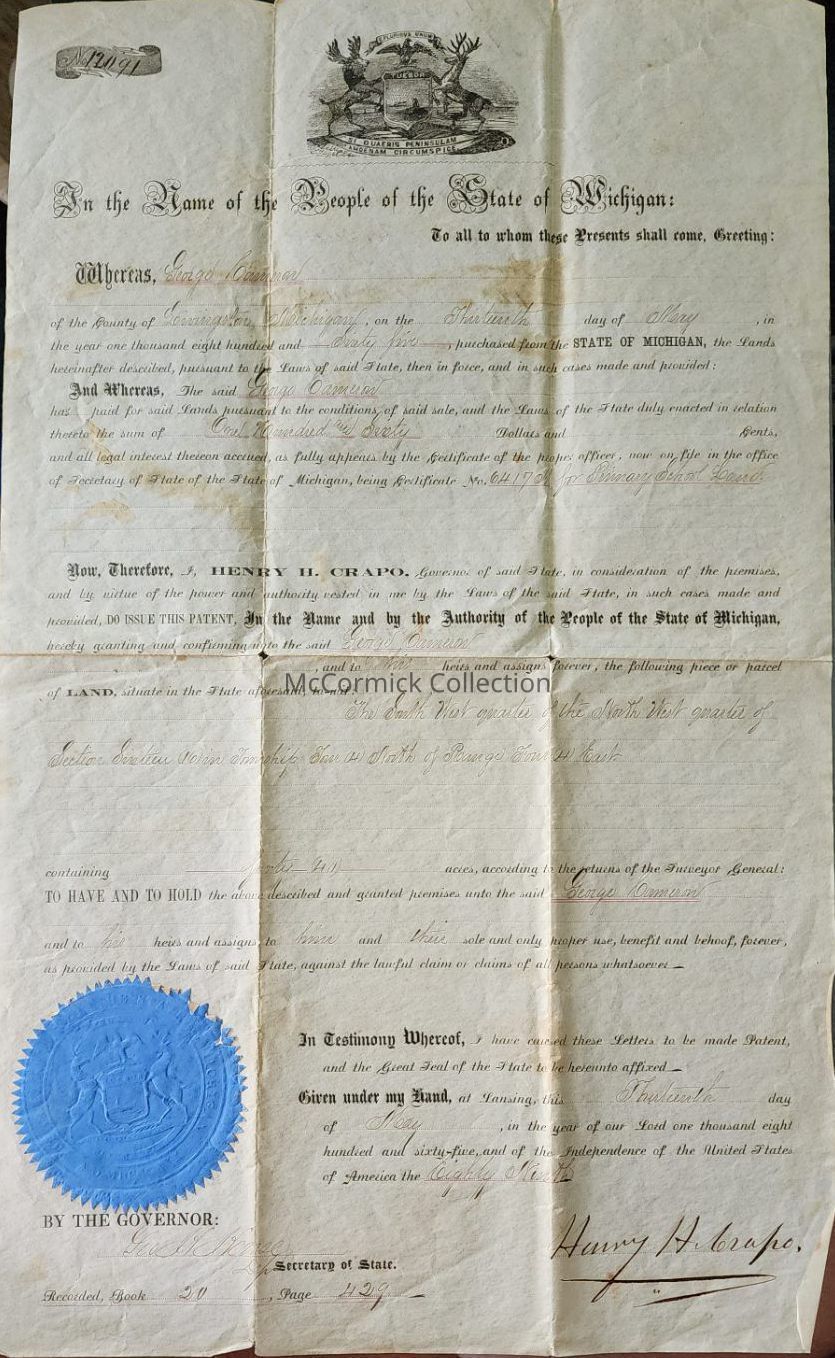 No. 12191
E PLURIBUS UNUM
TUEBOR
SI QUAERIS PENINSULAM
AMOENAM CIRCUMSPICE
In the Name of the People of the State of Michigan:
To all to whom these Presents shall come, Greeting:
Whereas, George Cameron
of the County of Livingston, Michigan, on the Thirteenth day of May, in
the year one thousand eight hundred and Sixty five, purchased from the STATE OF MICHIGAN, the Lands
hereinafter described, pursuant to the Laws of said State, then in force, and in such cases made and provided:
And Whereas, The said George Cameron
has paid for said Lands pursuant to the conditions of said sale, and the Laws of the State duly enacted in relation
thereto the sum of One Hundred and Sixty Dollars and Cents,
and all legal interest thereon accrued, as fully appears by the Certificate of the proper officer, now on file in the office
of Secretary of State of the State of Michigan, being Certificate No. 6417 for Primary School Land
Now, Therefore, I, HENRY H. CRAPO, Governor of said State, in consideration of the premises,
and by virtue of the power and authority vested in me by the Laws of the said State, in such cases made and
provided, DO ISSUE THIS PATENT, In the Name and by the Authority of the People of the State of Michigan,
hereby granting and confirming unto the said George Cameron
, and to his heirs and assigns forever, the following piece or parcel
of LAND, situate in the State aforesaid, to-wit:
McCormick Collection
The South West quarter of the North West quarter of
Section Sixteen in Township Four 4 North of Range Four 4 East
containing forty 40 acres, according to the returns of the Surveyor General:
TO HAVE AND TO HOLD the above described and granted premises unto the said George Cameron
and to his heirs and assigns, to him and their sole and only proper use, benefit and behoof, forever,
as provided by the Laws of said State, against the lawful claim or claims of all persons whatsoever
In Testimony Whereof, I have caused these Letters to be made Patent,
and the Great Seal of the State to be hereunto affixed
Given under my Hand, at Lansing, this Thirteenth day
of May, in the year of our Lord one thousand eight
hundred and sixty-five, and of the Independence of the United States
of America the Eighty Ninth
BY THE GOVERNOR:
Henry H. Crapo.
Secretary of State.
Recorded, Book 20, Page 429